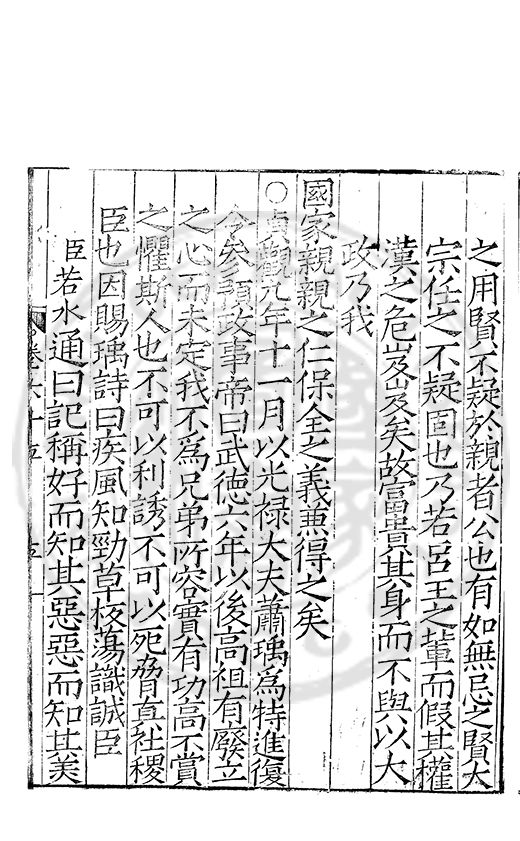 之用賢不疑於親者公也有如無忌之賢太
宗任之不疑固也乃若呂王之輩而假其權
漢之危岌岌矣故富貴其身而不與以大
政乃我
國家親親之仁保全之義兼得之矣
○貞觀九年十一月以光禄大夫蕭瑀為特進復
令參預政事帝曰武德六年以後高祖有廢立
之心而未定我不為兄弟所容實有功高不賞
之懼斯人也不可以利誘不可以死脅真社稷
臣也因賜瑀詩曰疾風知勁草板蕩識誠臣
臣若水通曰記稱好而知其惡惡而知其美
卷六十五